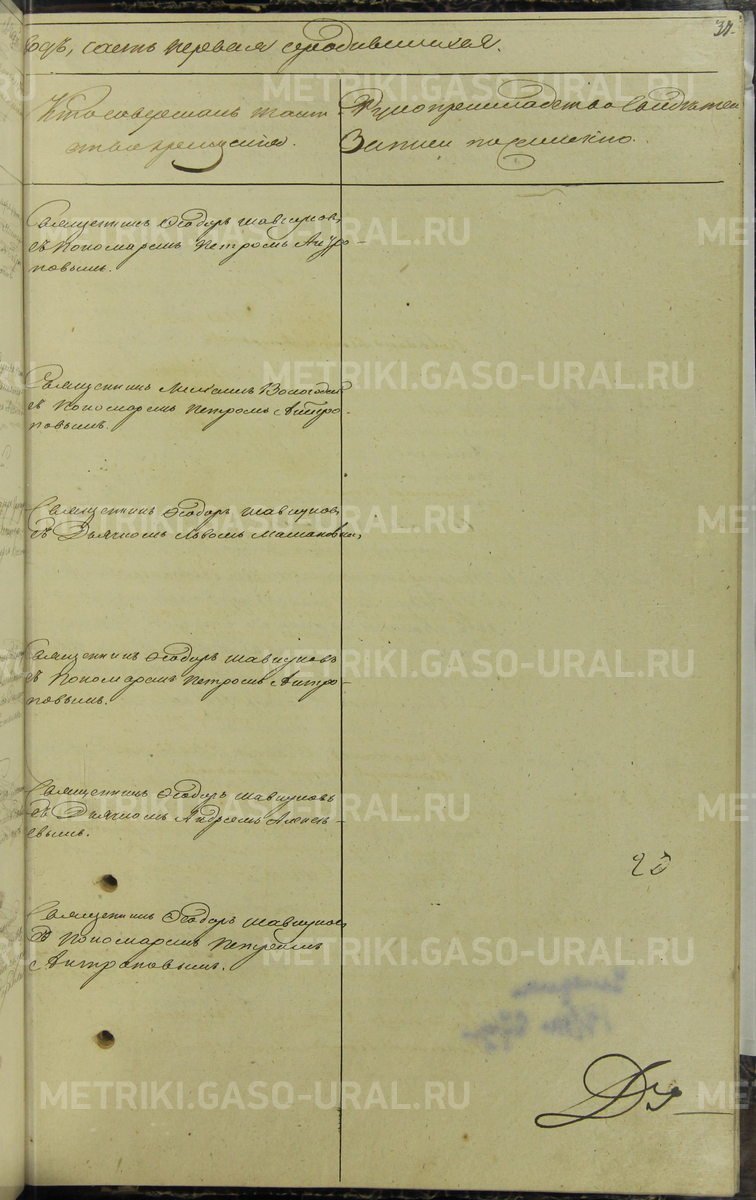 годъ, часть первая о родившихся.
Кто совершалъ таин-
ство крещенія.
Рукоприкладство свидѣтелей
записи по желанію.
Священникъ Ѳеодоръ Шавкуновъ
съ Пономаремъ Петромъ Антро-
повымъ.
Священникъ Михаилъ
съ Пономаремъ Петромъ Антро-
повымъ.
Священникъ Ѳеодоръ Шавкуновъ
съ Дьячкомъ Львомъ
Священникъ Ѳеодоръ Шавкуновъ
съ Пономаремъ Петромъ Антро-
повымъ.
Священникъ Ѳеодоръ Шавкуновъ
съ Дьячкомъ Андреемъ Алексѣ-
евымъ.
Священникъ Ѳеодоръ Шавкуновъ
съ Пономаремъ Петромъ
Антроповымъ.
METRIKI.GASO-URAL.RU